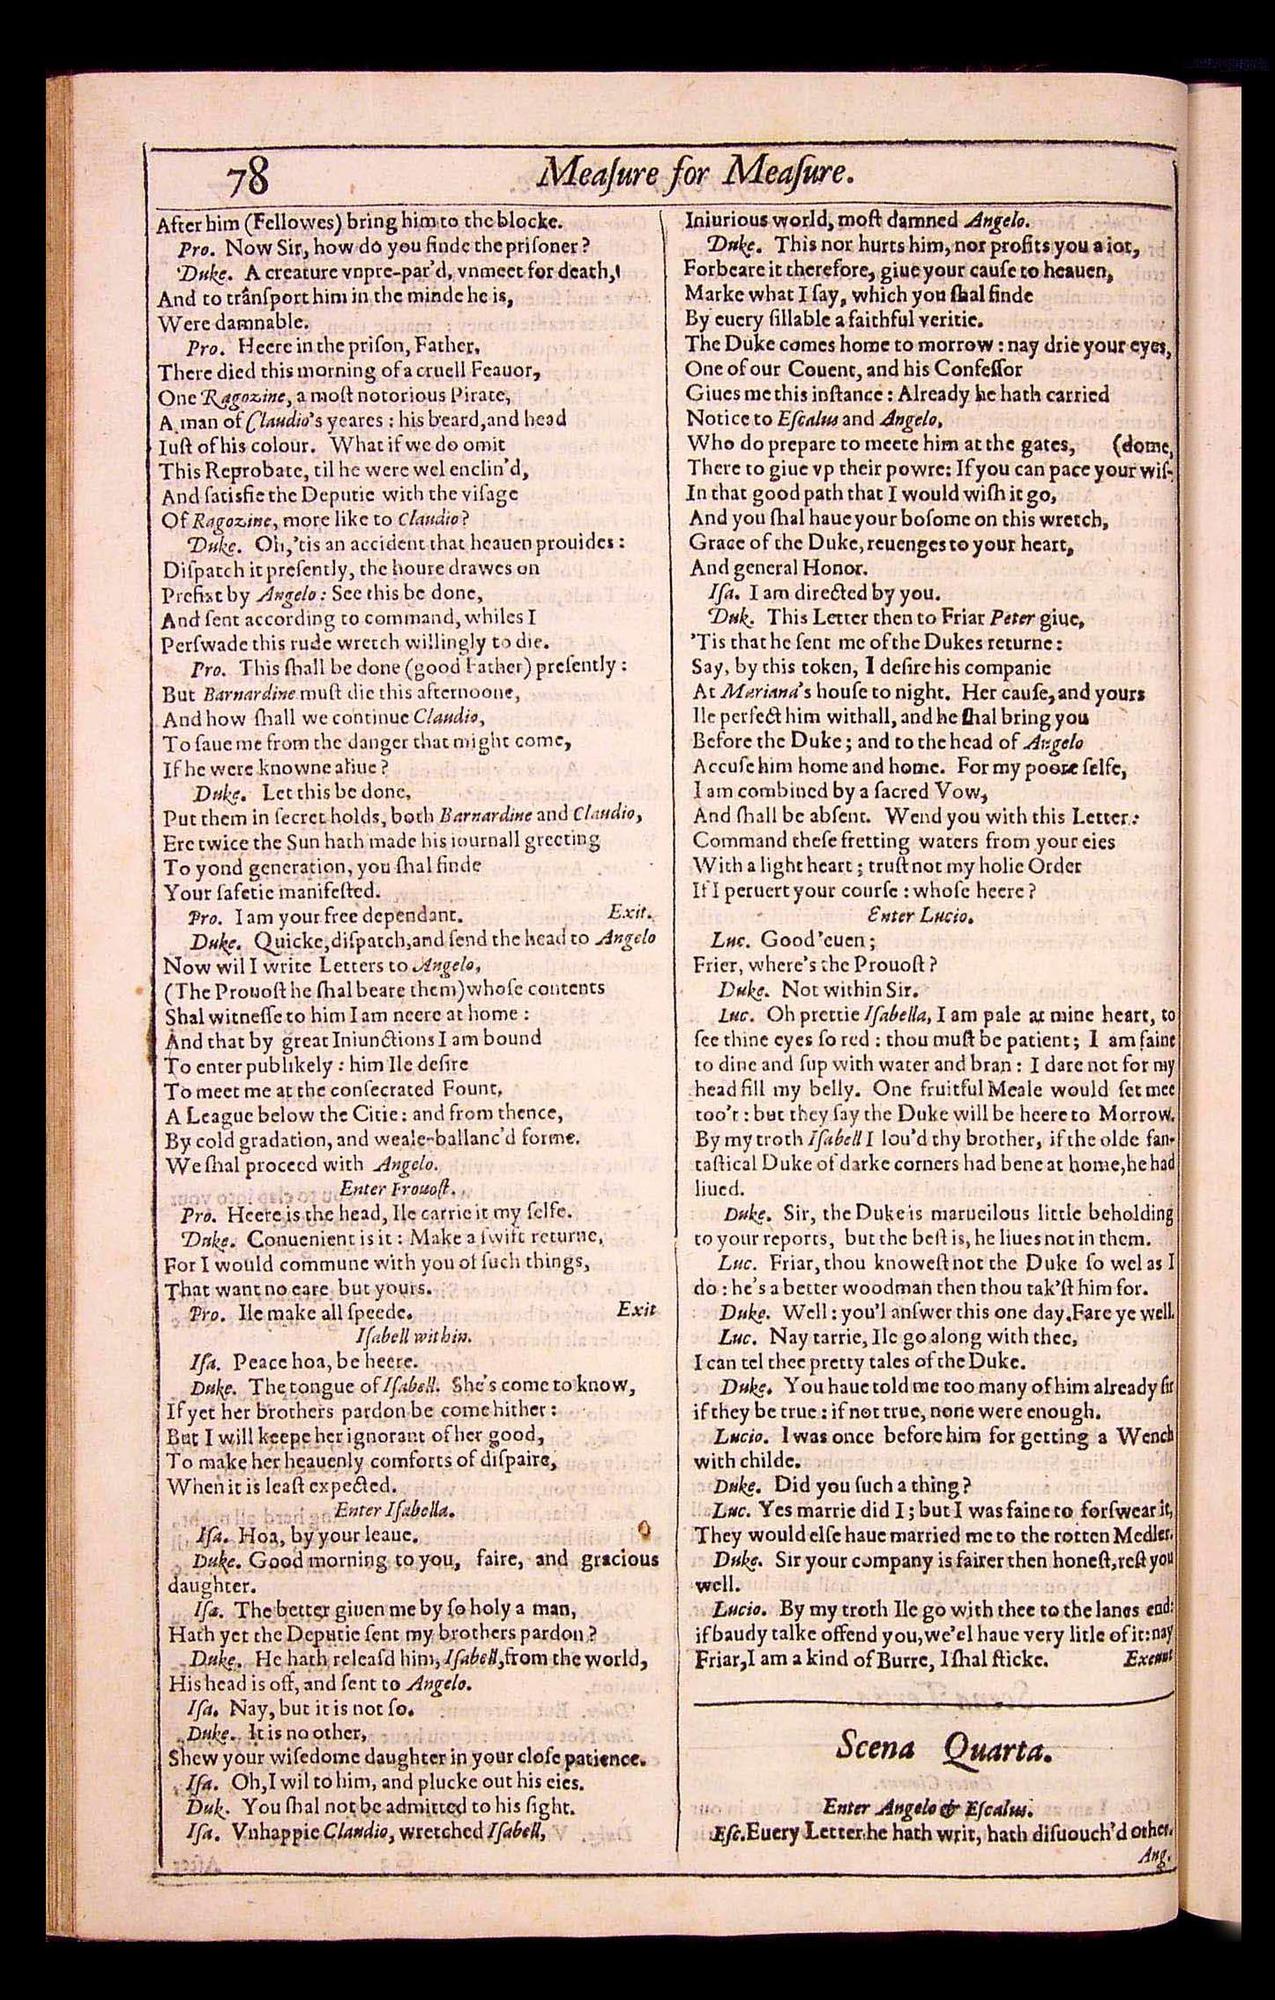 78
Meaſure for Meaſure.
After him (Fellowes) bring him to the blocke.
Pro. Now Sir, how do you finde the priſoner?
Duke. A creature vnpre-par'd, vnmeet for death,
And to tranſport him in the minde he is,
Were damnable.
Pro. Heere in the priſon, Father,
There died this morning of a cruell Feauor,
One Ragozine, a moſt notorious Pirate,
A man of Claudio's yeares: his beard, and head
Iuſt of his colour. What if we do omit
This Reprobate, til he were wel enclin'd,
And ſatisfie the Deputie with the viſage
Of Ragozine, more like to Claudio?
Duke. Oh, 'tis an accident that heauen prouides:
Diſpatch it preſently, the houre drawes on
Prefixt by Angelo: See this be done,
And ſent according to command, whiles I
Perſwade this rude wretch willingly to die.
Pro. This ſhall be done (good Father) preſently:
But Barnardine muſt die this afternoone,
And how ſhall we continue Claudio,
To ſaue me from the danger that might come,
If he were knowne aliue?
Duke. Let this be done,
Put them in ſecret holds, both Barnardine and Claudio,
Ere twice the Sun hath made his iournall greeting
To yond generation, you ſhal finde
Your ſafetie manifeſted.
Pro. I am your free dependant. Exit.
Duke. Quicke, diſpatch, and ſend the head to Angelo
Now wil I write Letters to Angelo,
(The Prouoſt he ſhal beare them) whoſe contents
Shal witneſſe to him I am neere at home:
And that by great Iniunctions I am bound
To enter publikely: him Ile deſire
To meet me at the conſecrated Fount,
A League below the Citie: and from thence,
By cold gradation, and weale-ballanc'd forme.
We ſhal proceed with Angelo.
Enter Prouoſt.
Pro. Heere is the head, Ile carrie it my ſelfe.
Duke. Conuenient is it: Make a ſwift returne,
For I would commune with you of ſuch things,
That want no eare but yours.
Pro. Ile make all ſpeede. Exit
Iſabell within.
Iſa. Peace hoa, be heere.
Duke. The tongue of Iſabell. She's come to know,
If yet her brothers pardon be come hither:
But I will keepe her ignorant of her good,
To make her heauenly comforts of diſpaire,
When it is leaſt expected.
Enter Iſabella.
Iſa. Hoa, by your leaue.
Duke. Good morning to you, faire, and gracious
daughter.
Iſa. The better giuen me by ſo holy a man,
Hath yet the Deputie ſent my brothers pardon?
Duke. He hath releaſd him, Iſabell, from the world,
His head is off, and ſent to Angelo.
Iſa. Nay, but it is not ſo.
Duke. It is no other,
Shew your wiſedome daughter in your cloſe patience.
Iſa. Oh, I wil to him, and plucke out his eies.
Duk. You ſhal not be admitted to his ſight.
Iſa. Vnhappie Claudio, wretched Iſabell,
Iniurious world, moſt damned Angelo.
Duke. This nor hurts him, nor profits you a iot,
Forbeare it therefore, giue your cauſe to heauen,
Marke what I ſay, which you ſhal finde
By euery ſillable a faithful veritie.
The Duke comes home to morrow: nay drie your eyes,
One of our Couent, and his Confeſſor
Giues me this inſtance: Already he hath carried
Notice to Eſcalus and Angelo,
Who do prepare to meete him at the gates, (dome,
There to giue vp their powre: If you can pace your wiſ-
In that good path that I would wiſh it go,
And you ſhal haue your boſome on this wretch,
Grace of the Duke, reuenges to your heart,
And general Honor.
Iſa. I am directed by you.
Duk. This Letter then to Friar Peter giue,
'Tis that he ſent me of the Dukes returne:
Say, by this token, I deſire his companie
At Mariana's houſe to night. Her cauſe, and yours
Ile perfect him withall, and he ſhal bring you
Before the Duke; and to the head of Angelo
Accuſe him home and home. For my poore ſelfe,
I am combined by a ſacred Vow,
And ſhall be abſent. Wend you with this Letter:
Command theſe fretting waters from your eies
With a light heart; truſt not my holie Order
If I peruert your courſe: whoſe heere?
Enter Lucio.
Luc. Good 'euen;
Frier, where's the Prouoſt?
Duke. Not within Sir.
Luc. Oh prettie Iſabella, I am pale at mine heart, to
ſee thine eyes ſo red: thou muſt be patient; I am faine
to dine and ſup with water and bran: I dare not for my
head fill my belly. One fruitful Meale would ſet mee
too't: but they ſay the Duke will be heere to Morrow.
By my troth Iſabell I lou'd thy brother, if the olde fan-
taſtical Duke of darke corners had bene at home, he had
liued.
Duke. Sir, the Duke is marueilous little beholding
to your reports, but the beſt is, he liues not in them.
Luc. Friar, thou knoweſt not the Duke ſo wel as I
do: he's a better woodman then thou tak'ſt him for.
Duke. Well: you'l anſwer this one day. Fare ye well.
Luc. Nay tarrie, Ile go along with thee,
I can tel thee pretty tales of the Duke.
Duke. You haue told me too many of him already ſir
if they be true: if not true, none were enough.
Lucio. I was once before him for getting a Wench
with childe.
Duke. Did you ſuch a thing?
Luc. Yes marrie did I; but I was faine to forſwear it,
They would elſe haue married me to the rotten Medler.
Duke. Sir your company is fairer then honeſt, reſt you
well.
Lucio. By my troth Ile go with thee to the lanes end:
if baudy talke offend you, we'el haue very litle of it: nay
Friar, I am a kind of Burre, I ſhal ſticke. Exeunt
Scena Quarta.
Enter Angelo & Eſcalus.
Eſc. Euery Letter he hath writ, hath diſuouch'd other.
Ang.